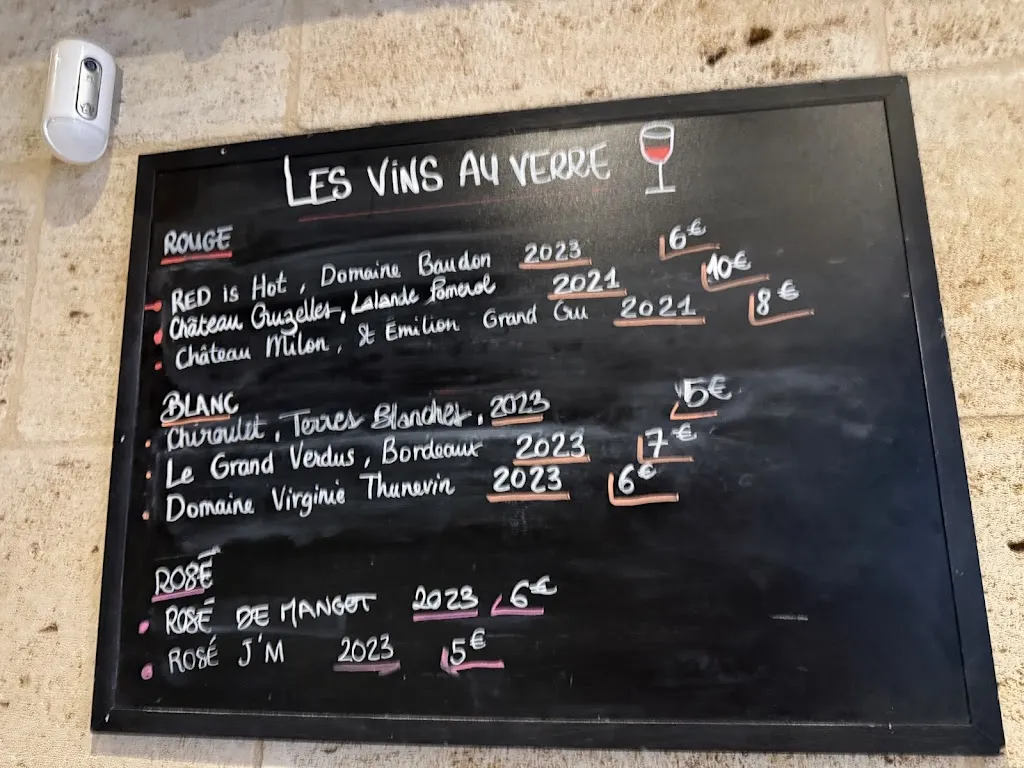 LES VINS AU VERRE
ROUGE
RED is Hot, Domaine Baudon 2023 6€
Château Cruzelles, Lalande Pomerol 2021 10€
Château Milon, St Emilion Grand Cru 2021 8€
BLANC
Chiroulet, Terres Blanches, 2023 5€
Le Grand Verdus, Bordeaux 2023 7€
Domaine Virginie Thunevin 2023 6€
ROSÉ
ROSÉ DE MANGOT 2023 6€
ROSÉ J'M 2023 5€